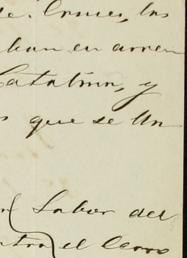 de. Cruces, los
ban en arren
Catalina, y
s que se Un
Labor del
ntra el Cerro